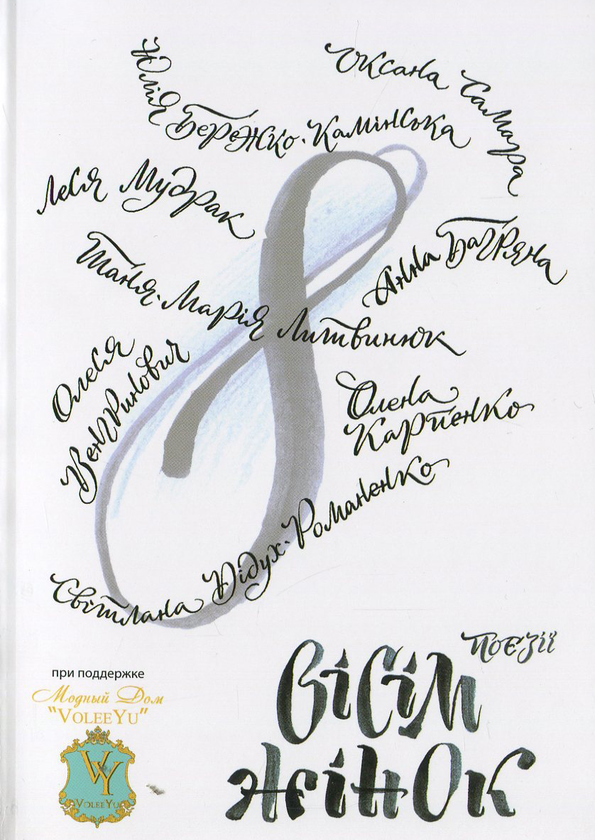 Юлія Бережко-Камінська
Оксана Самара
Леся Мудрак
Анна Багряна
Таня-Марія Литвинюк
Олеся
Венгринович
Олена
Карпенко
Світлана Дідух-Романенко
поезії
Вісім
жінок
при поддержке
Модный Дом
"VOLEEYU"
VY
VOLEEYU
8